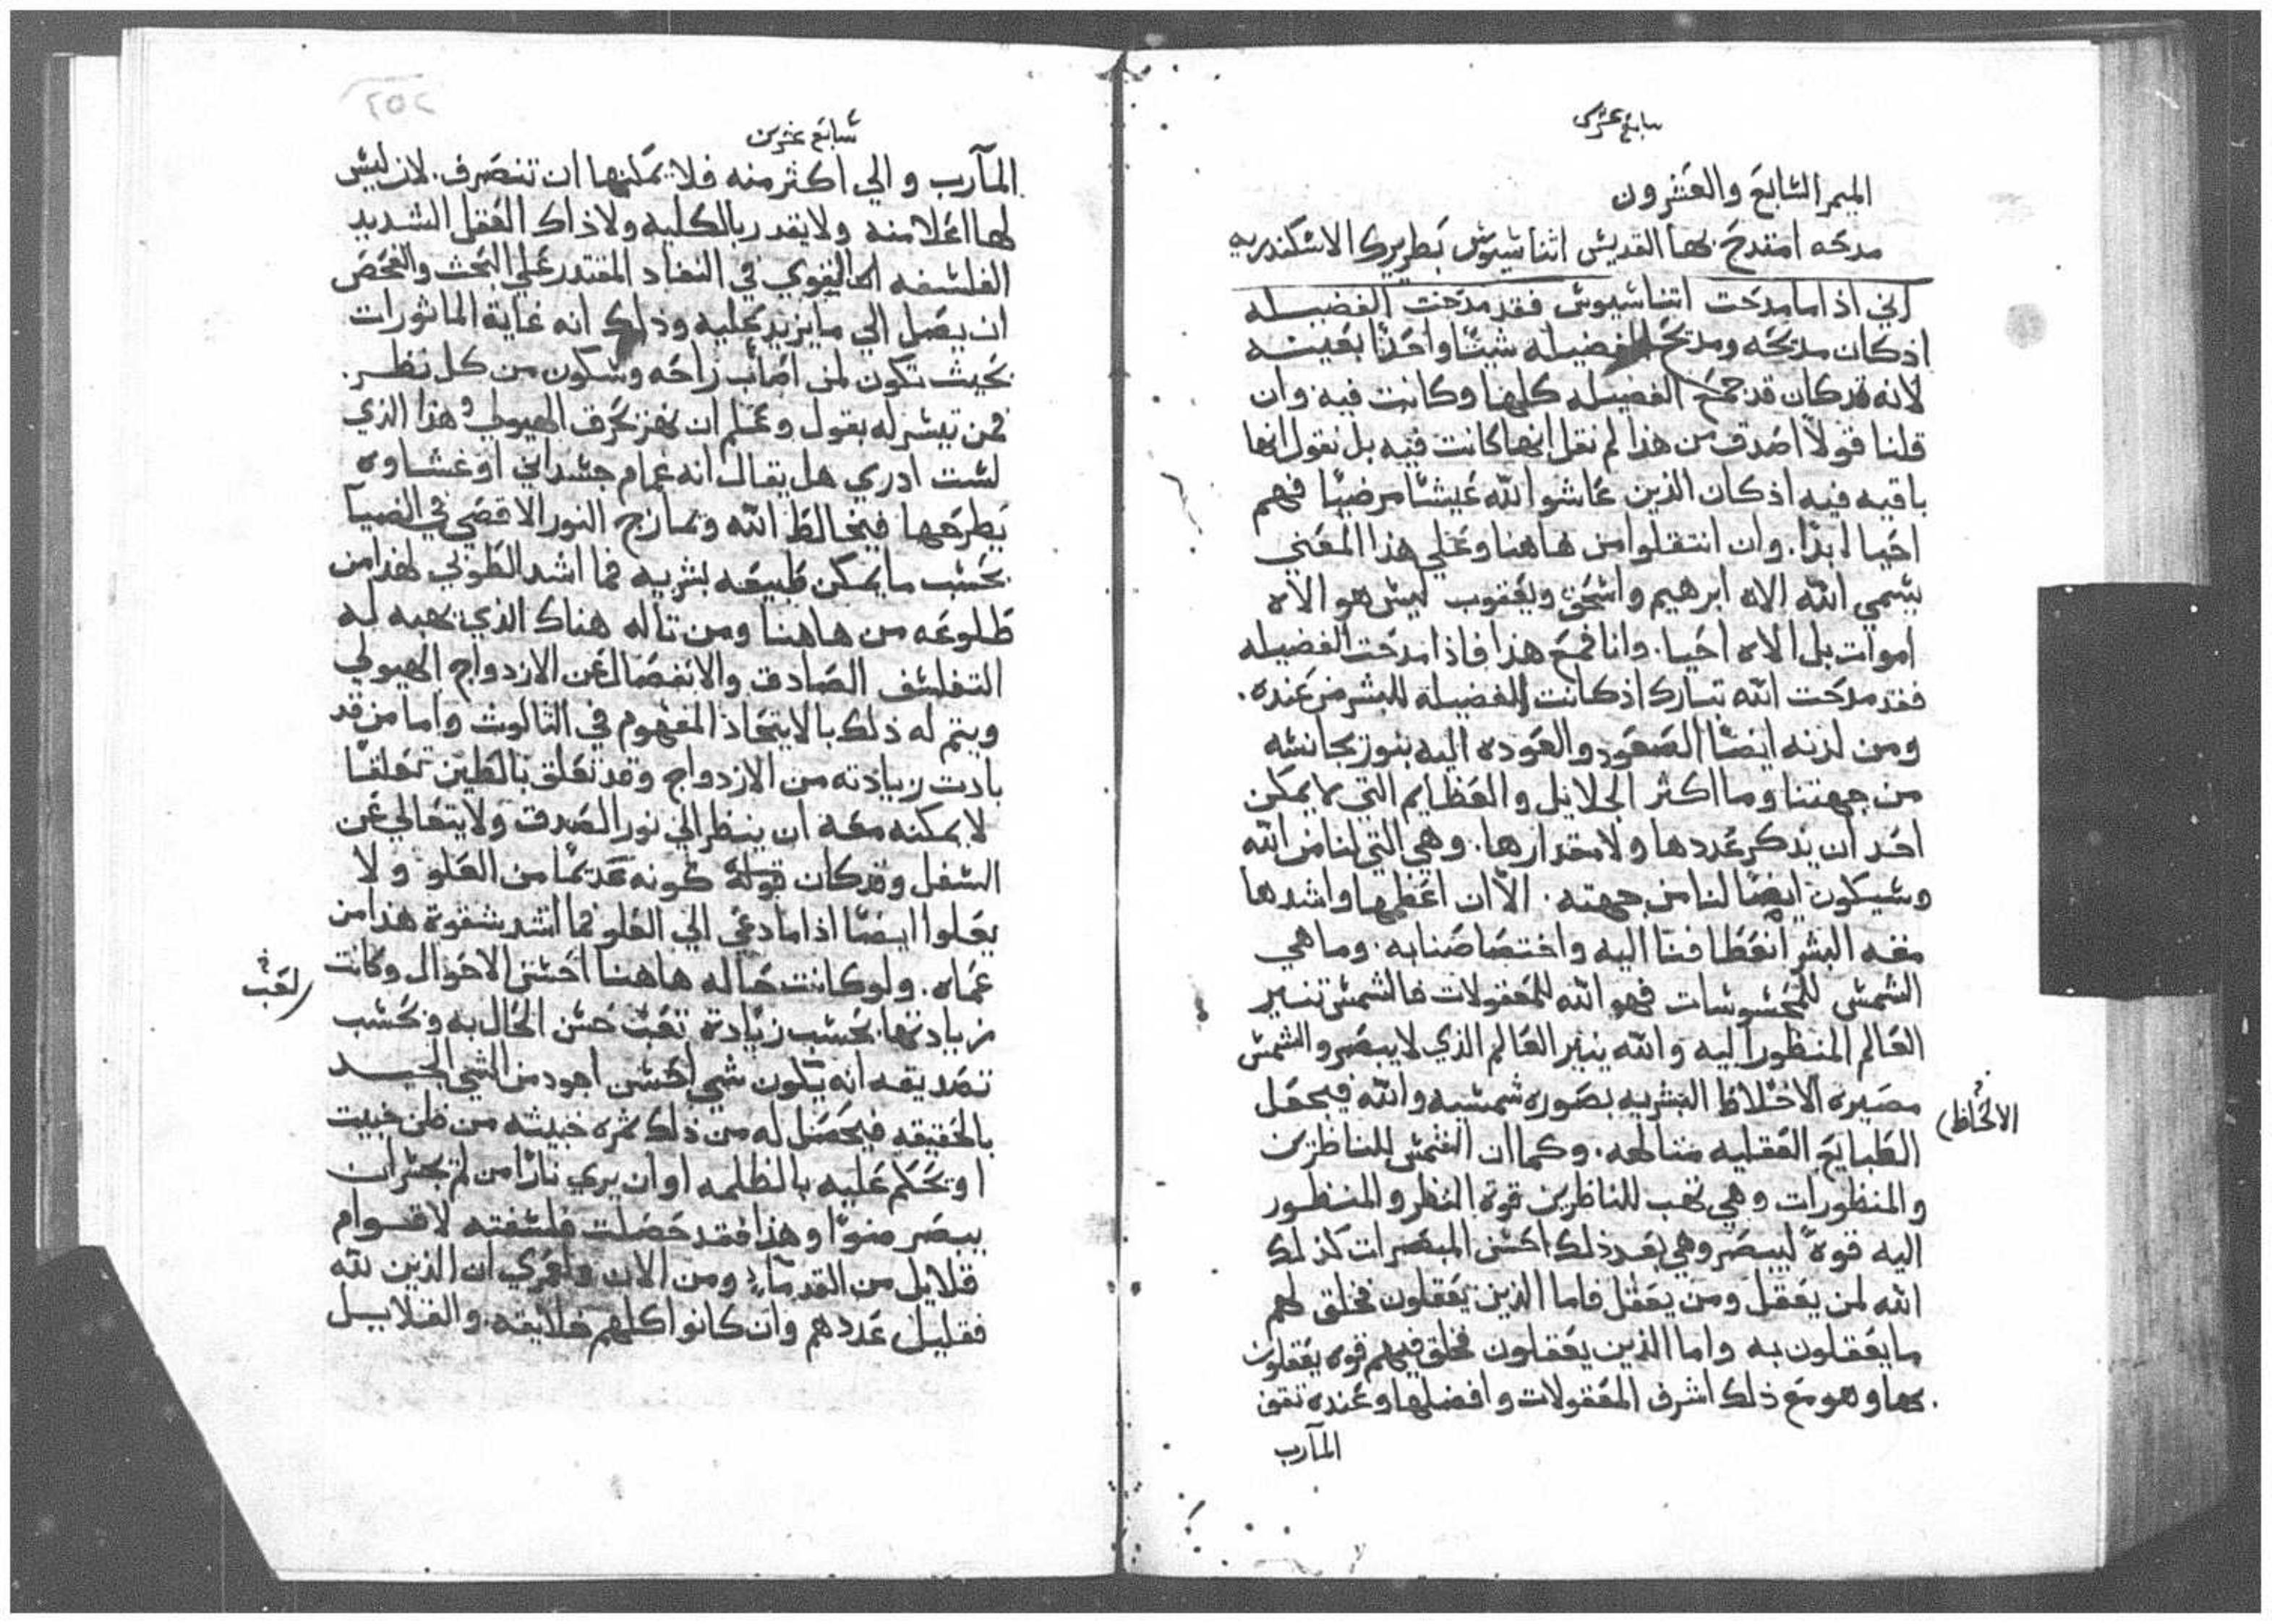 سابع عشرين
الميمر السابع والعشرون
مدحه امتدح بها القديس اثناسيوس بطريرك الاسكندريه
اني اذا ما مدحت اثناسيوس فقد مدحت الفضيله
اذ كان مديحه ومديح الفضيله شيئا واحدا بعينه
لانه قد كان قد جمع الفضيله كلها وكانت فيه وان
قلنا قولا اصدق من هذا لم نقل انها كانت فيه بل نقول انها
باقيه فيه اذ كان الذين عاشوا لله عيشا مرضيا فهم
احيا ابدا. وان انتقلوا من هاهنا وعلي هذا المعني
يسمي الله الاه ابرهيم واسحق ويعقوب ليس هو الاه
اموات بل الاه احيا. وانا فمع هذا فاذا مدحت الفضيله
فقد مدحت الله تبارك اذ كانت الفضيله للبشر من عنده.
ومن لدنه ايضا الصعود والعوده اليه بنور يجانسه
من جهتنا وما اكثر الجلايل والعظايم التي لا يمكن
احد ان يذكر عددها ولا مقدارها. وهي التي لنا من الله
وسيكون ايضا لنا من جهته. الا ان اعظمها واشدها
منه البشر انعطافنا اليه واختصاصنا به. وما هي
الشمس للمحسوسات فهو الله للمعقولات فالشمس تنير
العالم المنظور اليه والله ينير العالم الذي لا يبصر والشمس
مصيره الاختلاظ البشريه بصوره شمسيه والله فيجعل
الالحاظ
الطبايع العقليه متالهه. وكما ان الشمس للناظرين
والمنظورات وهي تهب للناظرين قوة النظر والمنظور
اليه قوة ليبصر وهي بعد ذلك احسن المبصرات كذلك
الله لمن يعقل ومن يعقل فاما الذين يعقلون فخلق لهم
ما يعقلون به واما الذين يعقلون فخلق فيهم قوه يعقلون
بها وهو مع ذلك اشرف المعقولات وافضلها وعنده تقف
المآرب
سابع عشرين
المآرب والي اكثر منه فلا يمكنها ان تنصرف. لان ليس
لها اعلا منه ولا يقدر بالكليه ولا ذاك العقل الشديد
الفلسفه القوي في النفاد المقتدر علي البحث والفحص
ان يصل الي ما يزيد عليه وذلك انه غاية الماثورات
بحيث تكون لمن اصاب راحه وسكون من كل نظر.
فمن تيسر له بقول وعلم ان يخرق الهيولي وهذا الذي
لست ادري هل يقال انه غمام جسداني او غشاوه
يطرحها فيخالط الله ويمازج النور الاقصي في الضيا
بحسب ما يمكن طبيعه بشريه فما اشد الطوبي لهذا من
طلوعه من هاهنا ومن تاله هناك الذي يهبه له
التفلسف الصادق والانفصال عن الازدواج الهيولي
ويتم له ذلك بالاتحاد المفهوم في الثالوث واما من قد
بادت زيادته من الازدواج وقد تعلق بالطين تعلقا
لا يمكنه معه ان ينظر الي نور الصدق ولا يتعالي عن
السفل وقد كان كونه قديما من العلو ولا
يعلوا ايضا اذا ما دعي الي العلو فما اشد شقوة هذا من
عماه. ولو كانت حاله هاهنا احسن الاحوال وكانت
زيادتها بحسب زيادة تعب حسن الحال به وبحسب
لعب
تصديقه انه يكون شي احسن اجود من الشي الجيد
بالحقيقه فيحصل له من ذلك ثمره خبيثه من ظن خبيث
او يحكم عليه بالظلمه او ان يري نارا من لم يجسر ان
يبصر ضوا وهذا فقد حصلت فلسفته لاقوام
قلايل من القدماء ومن الان ولعمري ان الذين لله
فقليل عددهم وان كانوا كلهم خلايقه. والقلايل